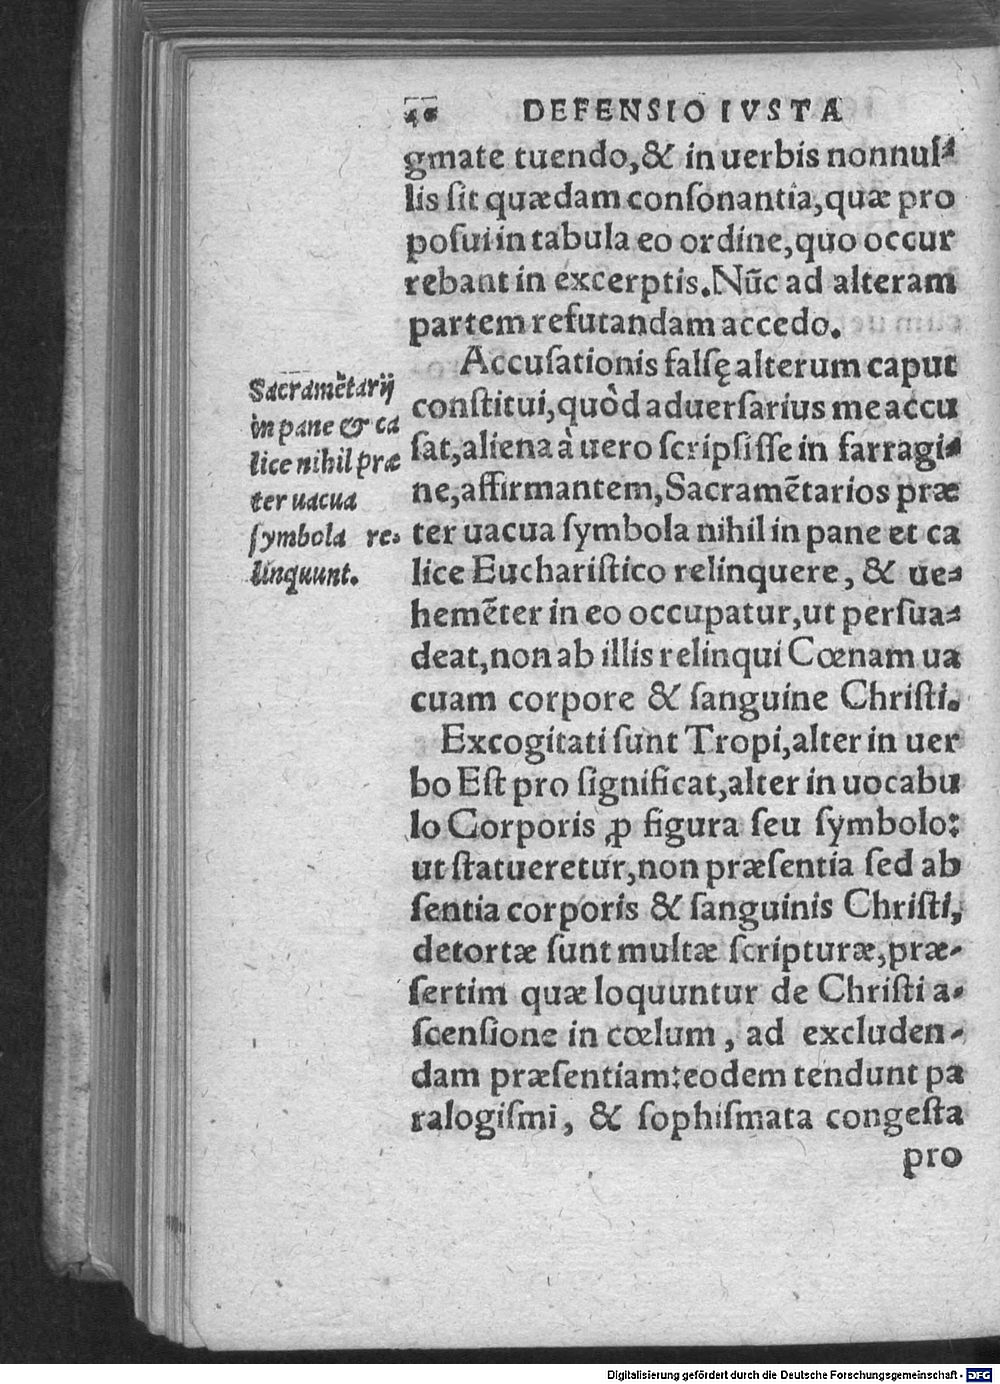 46 DEFENSIO IVSTA
gmate tuendo,& in uerbis nonnuſ⸗
lis ſit quædam conſonantia,quæ pro
poſui in tabula eo ordine,quo occur
rebant in excerptis.Nũc ad alteram
partem refutandam accedo.
Accuſationis falſę alterum caput
conſtitui,quòd aduerſarius me accu
ſat,aliena à uero ſcripſiſſe in farragi⸗
ne,affirmantem,Sacramẽtarios præ
ter uacua ſymbola nihil in pane et ca
lice Euchariſtico relinquere, & ue⸗
hemẽter in eo occupatur,ut perſua⸗
deat,non ab illis relinqui Cœnam ua
cuam corpore & ſanguine Chriſti.
Excogitati ſunt Tropi,alter in uer
bo Eſt pro ſignificat,alter in uocabu
lo Corporis ꝓ figura ſeu ſymbolo:
ut ſtatueretur,non præſentia ſed ab
ſentia corporis & ſanguinis Chriſti,
detortæ ſunt multæ ſcripturæ,præ⸗
ſertim quæ loquuntur de Chriſti a⸗
ſcenſione in cœlum, ad excluden⸗
dam præſentiam:eodem tendunt pa
ralogiſmi, & ſophiſmata congeſta
pro
Sacramẽtarij
in pane & ca
lice nihil præ
ter uacua
ſymbola re⸗
linquunt.
Digitalisierung gefördert durch die Deutsche Forschungsgemeinschaft - DFG